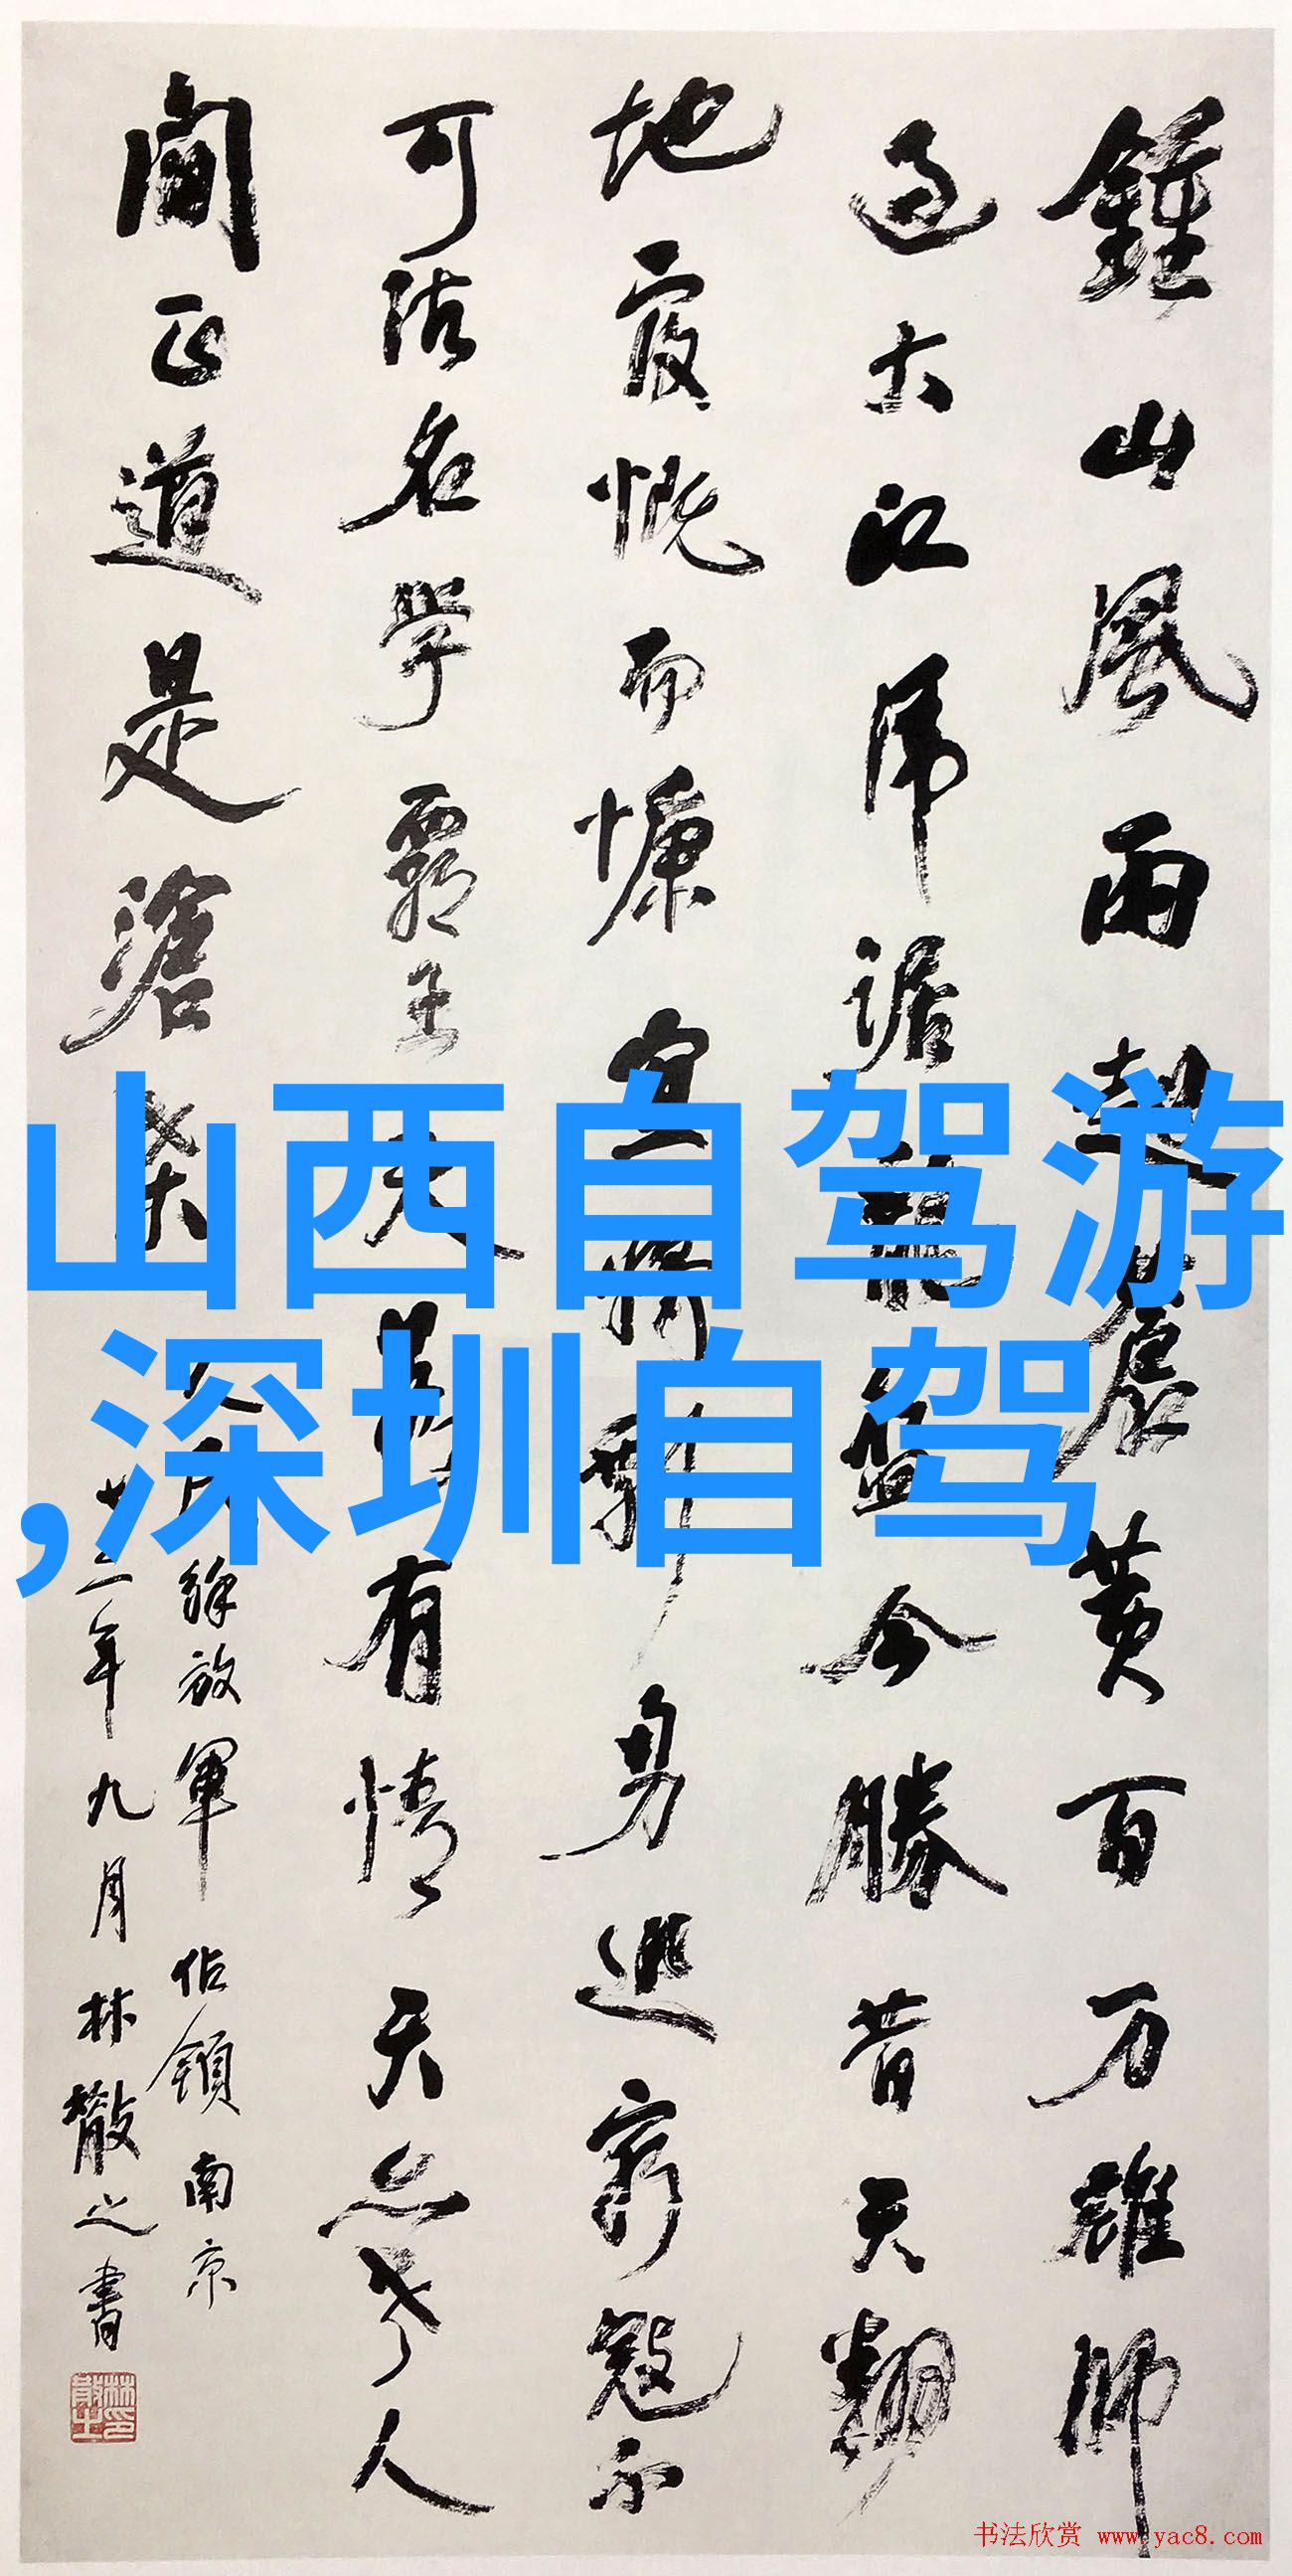 鍾山風雨起蒼黃百万雄師
过大江虎踞龍盤今勝昔天翻
地覆慨而慷宜將剩勇追窮寇不
可沽名學霸王天若有情天亦老人
間正道是滄桑
人民解放軍佔領南京
三年九月林散之書
林散之印
山西自驾游
,深圳自驾
书法欣赏 www.yac8.com